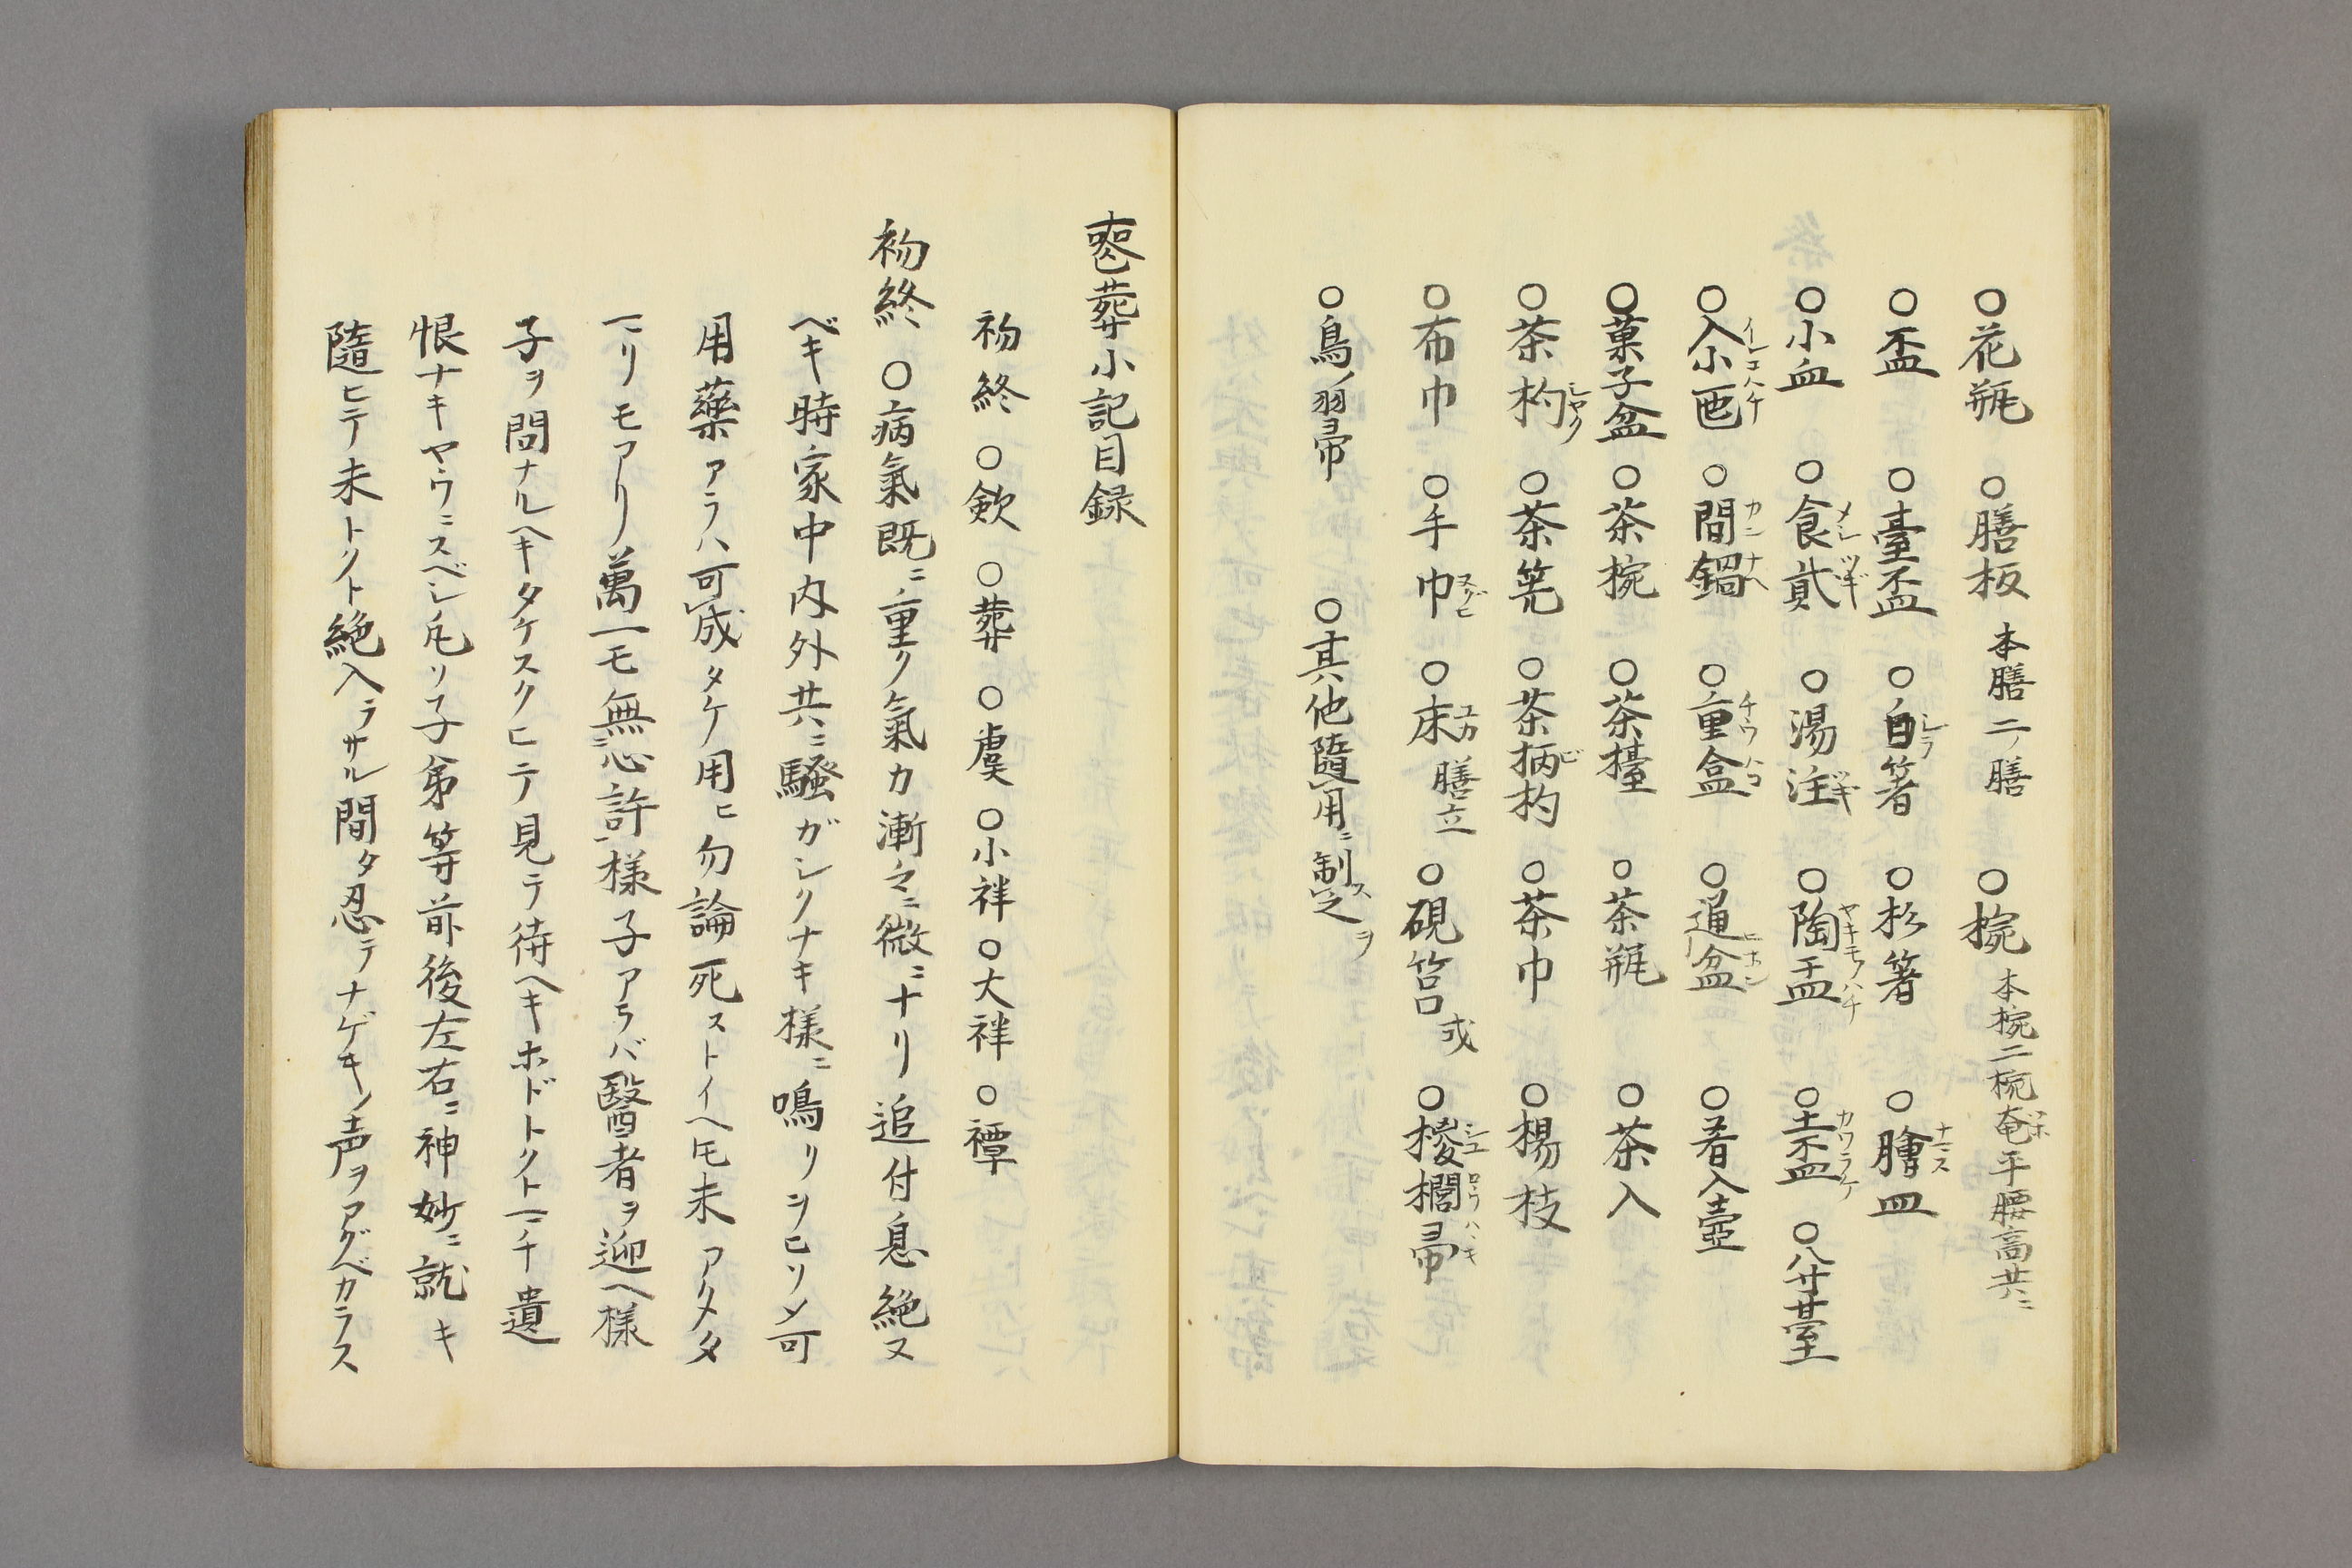 ○花瓶 ○膳板 本膳二ノ膳 ○椀 本椀二椀奄平腰高共ニ
○盃 ○臺盃 ○白箸 ○杉箸 ○膾皿
○小皿 ○食貳 ○湯注 ○陶盂 ○土盃 ○八寸臺
○入小 ○間鍋 ○重盒 ○通盆 ○着入壺
○菓子盆 ○茶椀 ○茶臺 ○茶瓶 ○茶入
○茶杓 ○茶筅 ○茶柄杓 ○茶巾 ○楊枝
○布巾 ○手巾 ○床 膳立 ○硯筥 或 ○椶櫚帚
○鳥ノ羽帚 ○其他隨用ニ制ス之ヲ
喪葬小記目録
初終 ○歛 ○葬 ○虞 ○小祥 ○大祥 ○禫
初終 ○病氣既ニ重ク氣力漸々ニ微ニナリ追付息絶ヌ
ベキ時家中内外共ニ騒ガシクナキ様ニ鳴リヲヒソメ可
用藥アラハ可成タケ用ヒ勿論死ストイヘ𪜈未アタヽタ
マリモアリ萬一モ無心許様子アラバ醫者ヲ迎ヘ様
子ヲ問ナルヘキタケスクヒテ見テ待ヘキホドトクトマチ遺
恨ナキヤウニスベシ凡ソ子弟等前後左右ニ神妙ニ就キ
隨ヒテ未トクト絶入ラサル間タ忍テナゲキノ声ヲアグベカラス